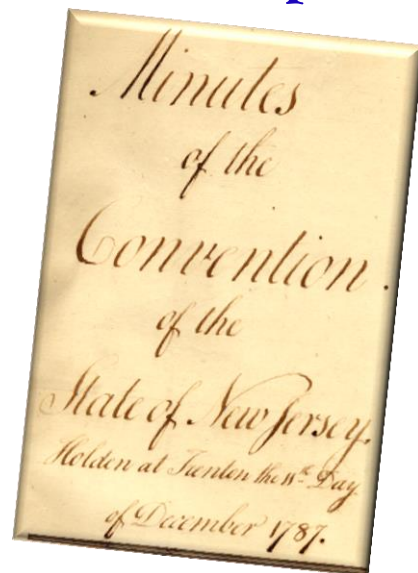 Minutes
of the
Convention.
of the
State of New Jersey.
Holden at Trenton the 11th Day
of December 1787.